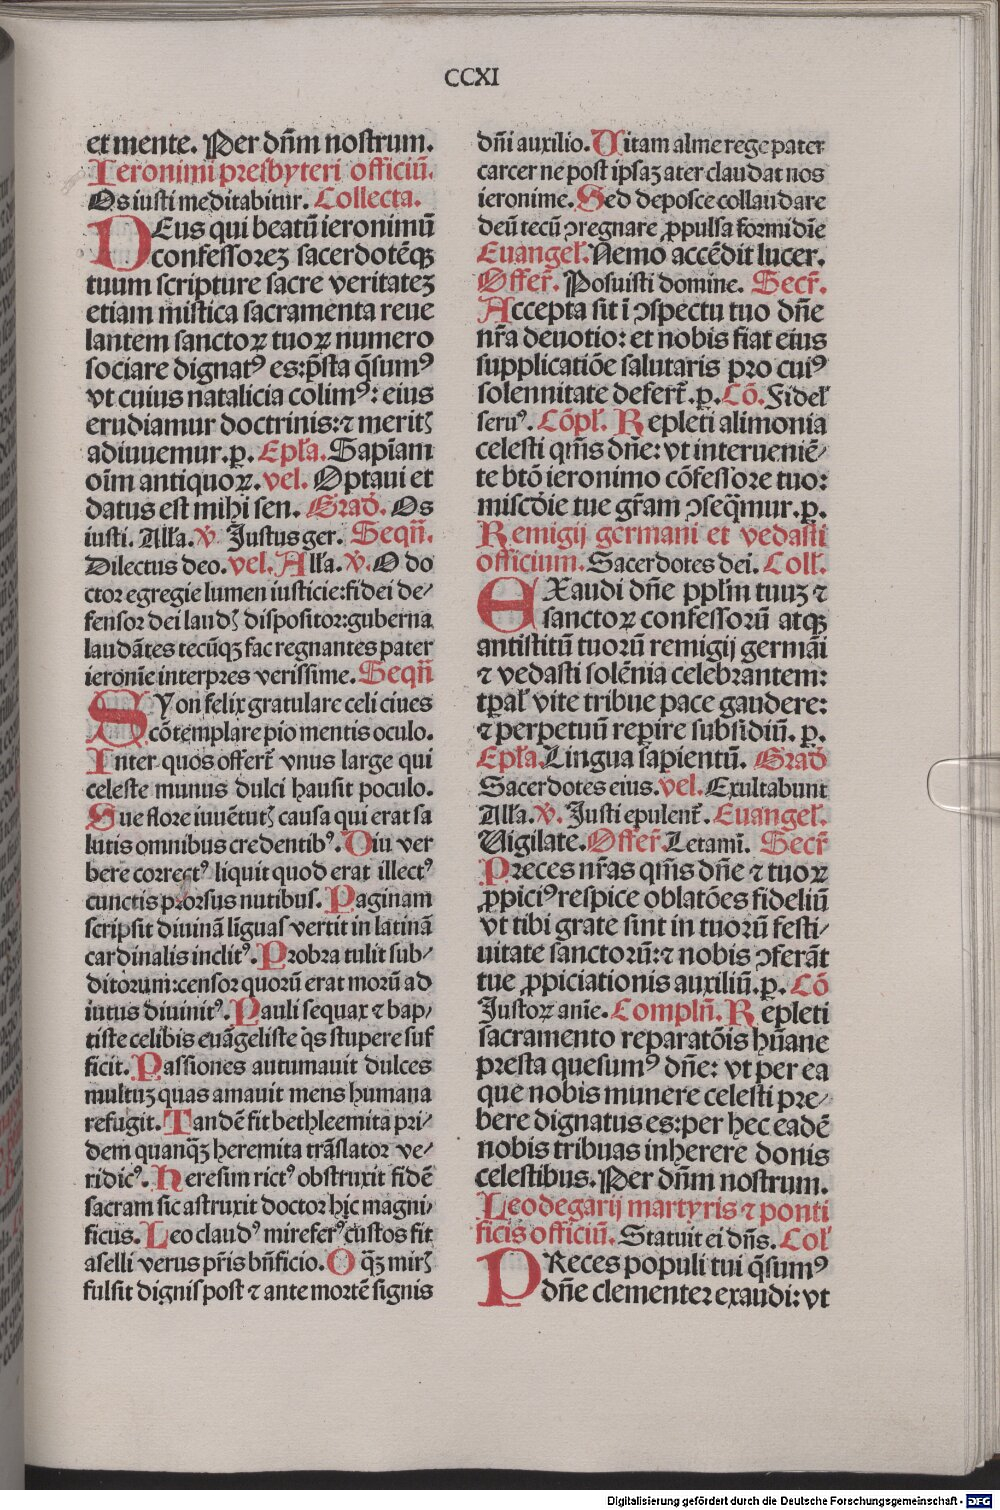 CCXI
et mente. Per dn̄m nostrum.
Ieronimi presbyteri officiū.
Os iusti meditabitur. Collecta.
DEus qui beatū ieronimū
confessoreꝫ sacerdotēqꝫ
tuum scripture sacre veritateꝫ
etiam mistica sacramenta reue
lantem sanctoꝝ tuoꝝ numero
sociare dignatꝰ es: p̄sta q̄sumꝰ
vt cuius natalicia colimꝰ: eius
erudiamur doctrinis: ⁊ meritꝭ
adiuuemur. p. Ep̄la. Sapīam
oīm antiquoꝝ. vel. Optaui et
datus est mihi sen. Grad̄. Os
iusti. All̄a. v̄. Justus ger. Seqn̄.
Dilectus deo. vel. All̄a. v̄. O do
ctor egregie lumen iusticie: fidei de⸗
fensor dei laudꝭ dispositor: guberna
laudātes tecūqꝫ fac regnantes pater
ieronīe interpres verissime. Seqn̄
SYon felix gratulare celi ciues
cōtemplare pio mentis oculo.
Inter quos offert̄ vnus large qui
celeste munus dulci hausit poculo.
Sue flore iuuētutꝭ causa qui erat sa
lutis omnibus credentibꝰ. Diu ver
bere correctꝰ liquit quod erat illectꝰ
cunctis prorsus nutibus. Paginam
scripsit diuinā liguas vertit in latinā
cardinalis inclitꝰ. Probra tulit sub⸗
ditorum: censor quorū erat morū ad
iutus diuinitꝰ. Pauli sequax ⁊ bap⸗
tiste celibis euāgeliste q̄s stupere suf
ficit. Passiones autumauit dulces
multuꝫ quas amauit mens humana
refugit. Tandē fit bethleemita pri⸗
dem quanqꝫ heremita trāslator ve⸗
ridicꝰ. Heresim rictꝰ obstruxit fidē
sacram sic astruxit doctor hic magni⸗
ficus. Leo claudꝰ mire ferꝰ custos fit
aselli verus pr̄is bn̄ficio. O qꝫ mirꝭ
fulsit dignis post ⁊ ante mortē signis
dn̄i auxilio. Uitam alme rege pater
carcer ne post ipsaꝫ ater claudat nos
ieronime. Sed deposce collaudare
deū tecū ↄregnare ꝓpulsa formidīe
Euangel̄. Nemo accēdit lucer.
Offer̄. Posuisti domine. Secr̄.
Accepta sit ī ↄspectu tuo dn̄e
nr̄a deuotio: et nobis fiat eius
supplicatiōe salutaris pro cuiꝰ
solennitate defert̄. p. Cō. Fidel̄
seruꝰ. Cōpl̄. Repleti alimonia
celesti qm̄s dn̄e: vt interueniē⸗
te btō ieronimo cōfessore tuo:
miscdīe tue gr̄am ↄseq̄mur. p.
Remigij germani et vedasti
officium. Sacerdotes dei. Coll̄.
EXaudi dn̄e ppl̄m tuuꝫ ⁊
sanctoꝝ confessorū atqꝫ
antistitū tuorū remigij germāi
⁊ vedasti solēnia celebrantem:
tꝑal̄ vite tribue pace gaudere:
⁊ perpetuū repire subsidiū. p.
Ep̄la. Lingua sapientū. Grad̄
Sacerdotes eius. vel. Exultabunt
All̄a. v̄. Justi epulent̄. Euangel̄.
Uigilate. Offer̄. Letamī. Secr̄
Preces nr̄as qm̄s dn̄e ⁊ tuoꝝ
ꝓpiciꝰ respice oblatōes fideliū
vt tibi grate sint in tuorū festi⸗
uitate sanctorū: ⁊ nobis ↄferāt
tue ꝓpiciationis auxiliū. p. Cō
Justoꝝ anīe. Compln̄. Repleti
sacramento reparatōis hūane
presta quesumꝰ dn̄e: vt per ea
que nobis munere celesti pre⸗
bere dignatus es: per hec eadē
nobis tribuas inherere donis
celestibus. Per dn̄m nostrum.
Leodegarij martyris ⁊ ponti
ficis officiū. Statuit ei dn̄s. Col̄
PReces populi tui q̄sumꝰ
dn̄e clementer exaudi: vt
Digitalisierung gefördert durch die Deutsche Forschungsgemeinschaft - DFG